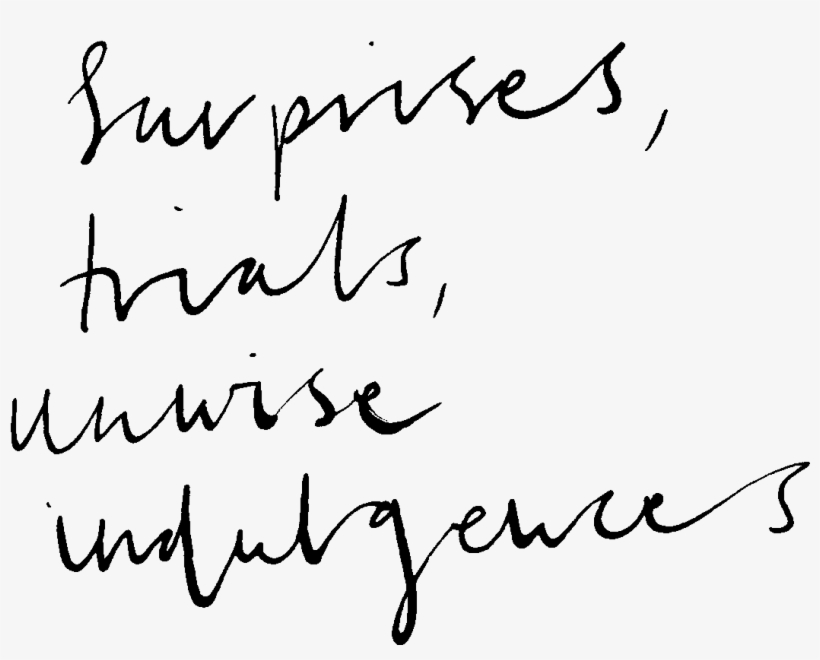 Surprises,
trials,
unwise
indulgences